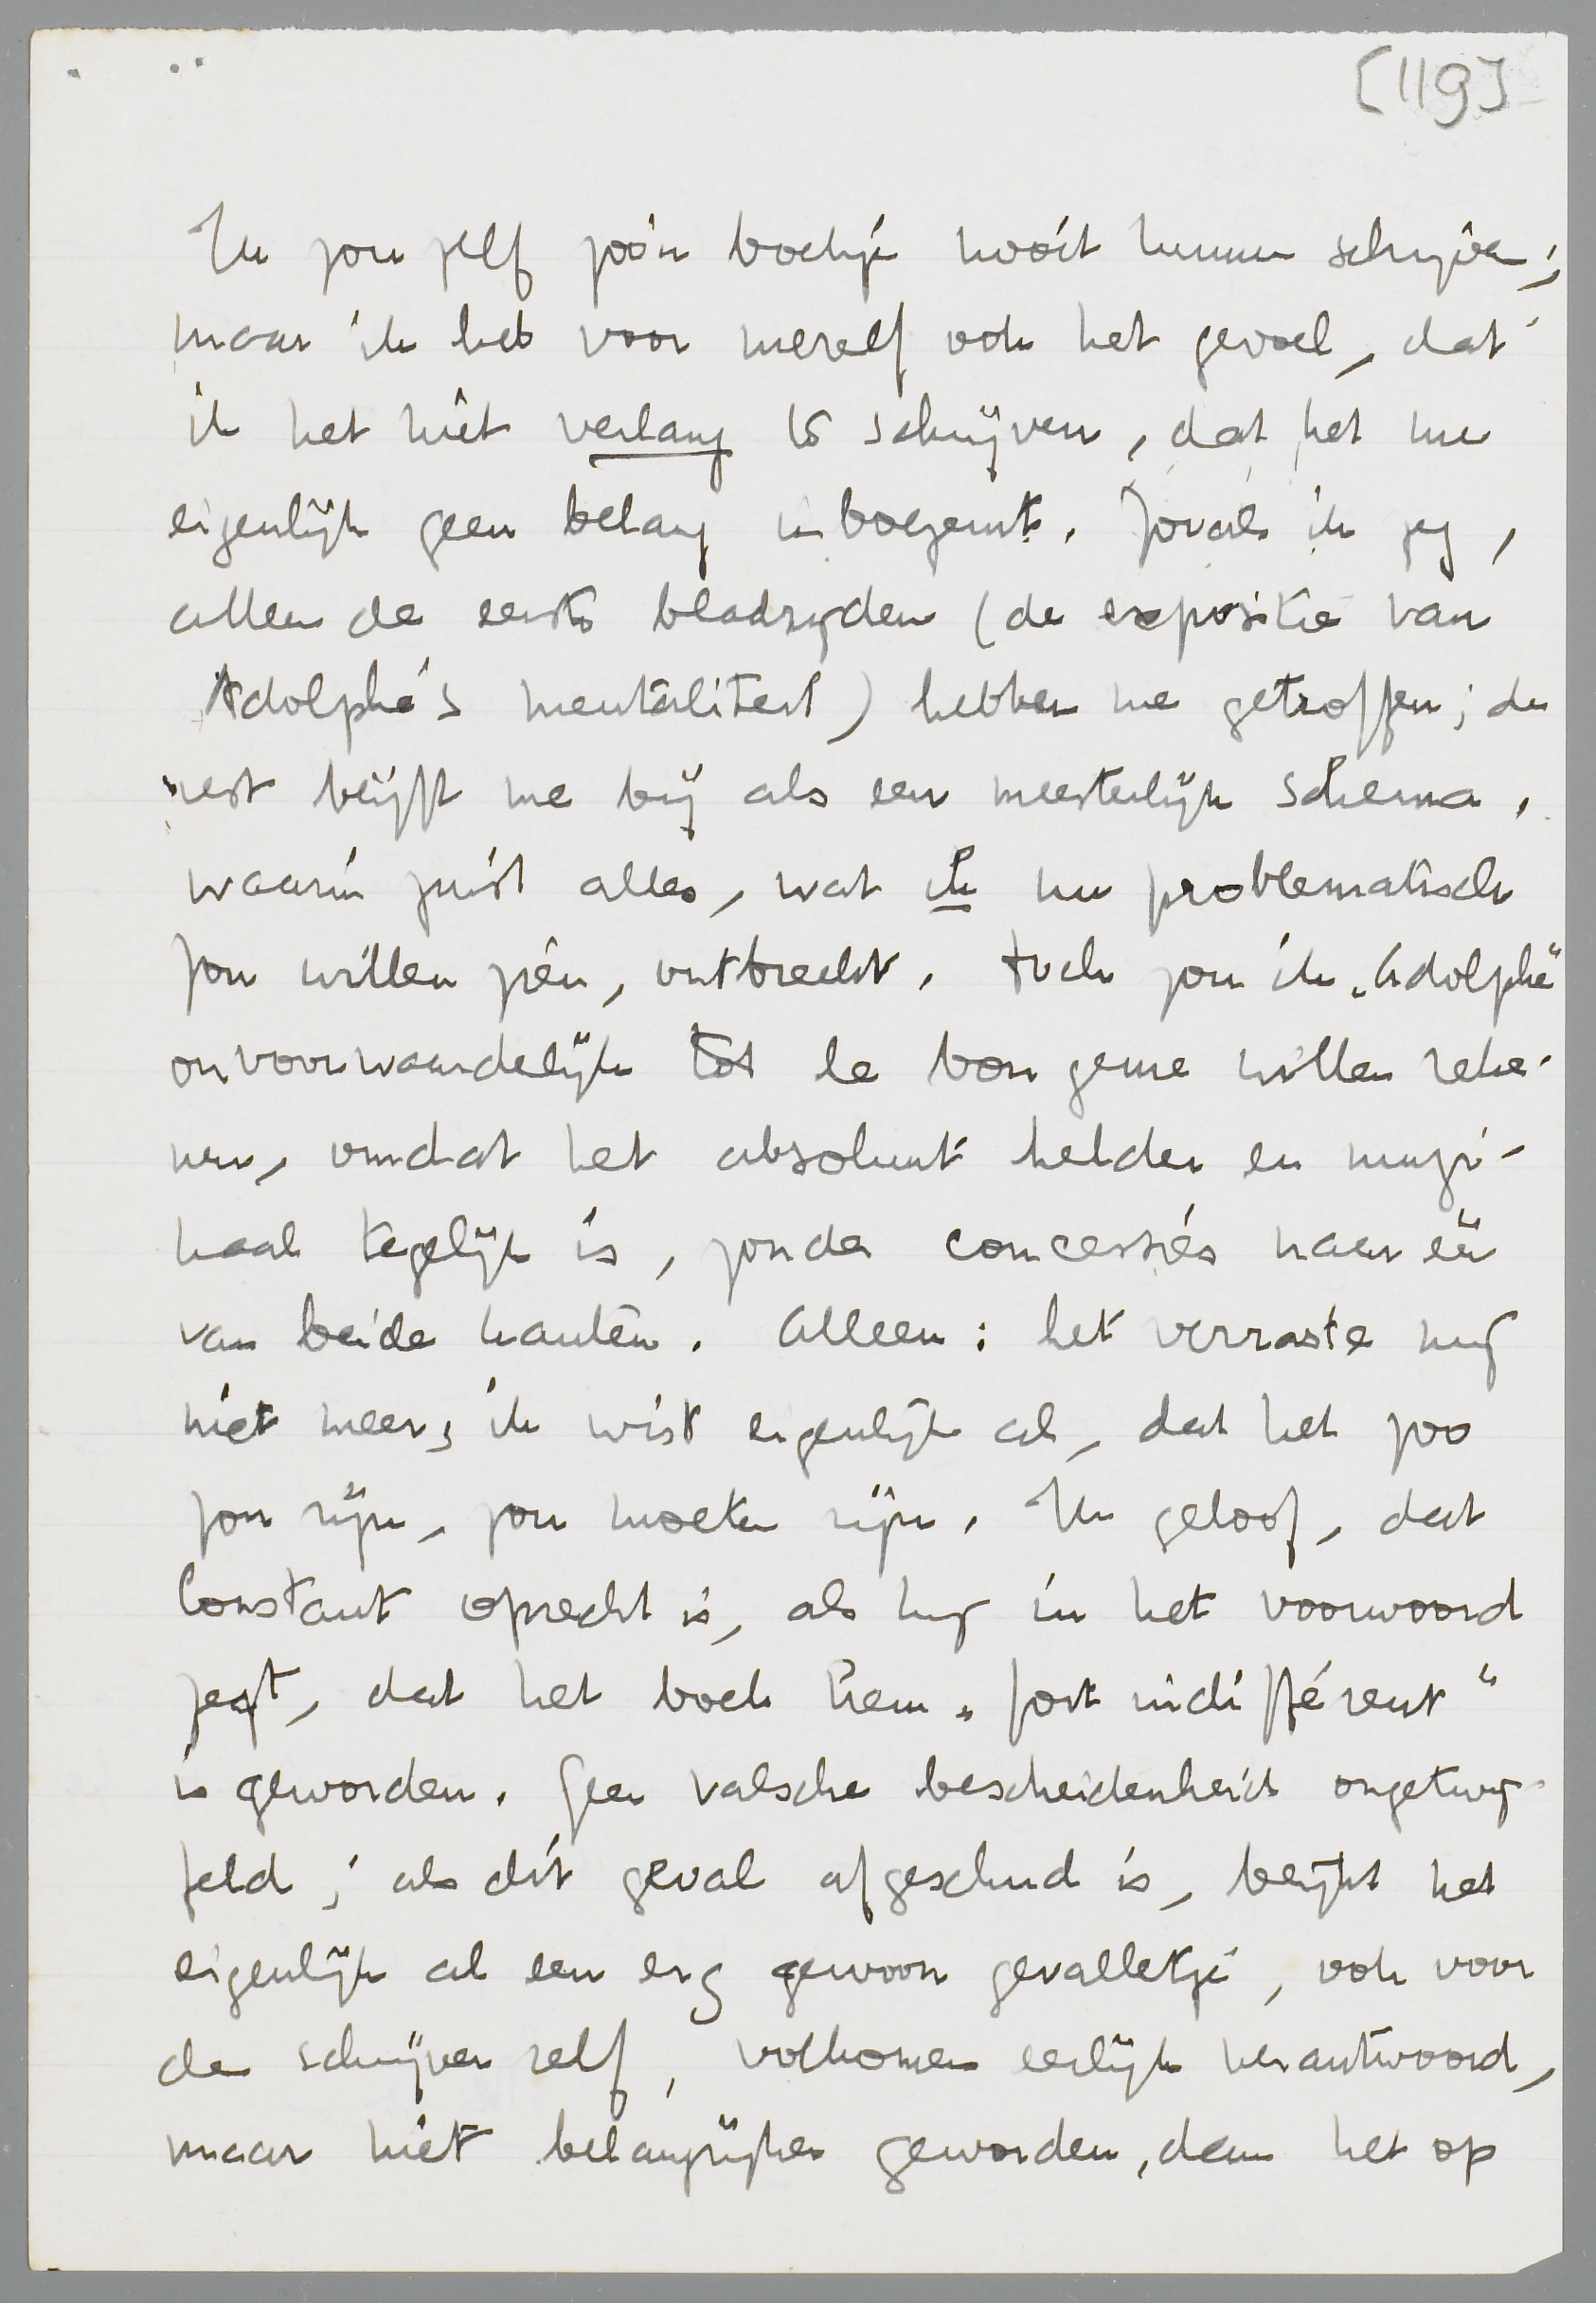 [119]
Ik zou zelf zoo'n boekje nooit kunnen schrijven;
maar ik heb voor mezelf ook het gevoel, dat
ik het niet verlang te schrijven, dat het me
eigenlijk geen belang inboezemt. Zooals ik zeg,
alleen de eerste bladzijden (de expositie van
Adolphe's mentaliteit) hebben me getroffen; de
rest blijft me bij als een meesterlijk schema,
waarin juist alles, wat ik nu problematisch
zou willen zien, ontbreekt. Toch zou ik „Adolphe"
onvoorwaardelijk tot le bon genre willen reke-
nen, omdat het absoluut helder en muzi-
kaal tegelijk is, zonder concessies naar één
van beide kanten. Alleen: het verraste mij
niet meer; ik wist eigenlijk al, dat het zoo
zou zijn, zou moeten zijn. Ik geloof, dat
Constant oprecht is, als hij in het voorwoord
zegt, dat het boek hem „fort indifférent"
is geworden. Geen valsche bescheidenheid ongetwij-
feld; als dit geval afgeschud is, blijkt het
eigenlijk al een erg gewoon gevalletje, ook voor
de schrijver zelf, volkomen eerlijk verantwoord,
maar niet belangrijker geworden, dan het op